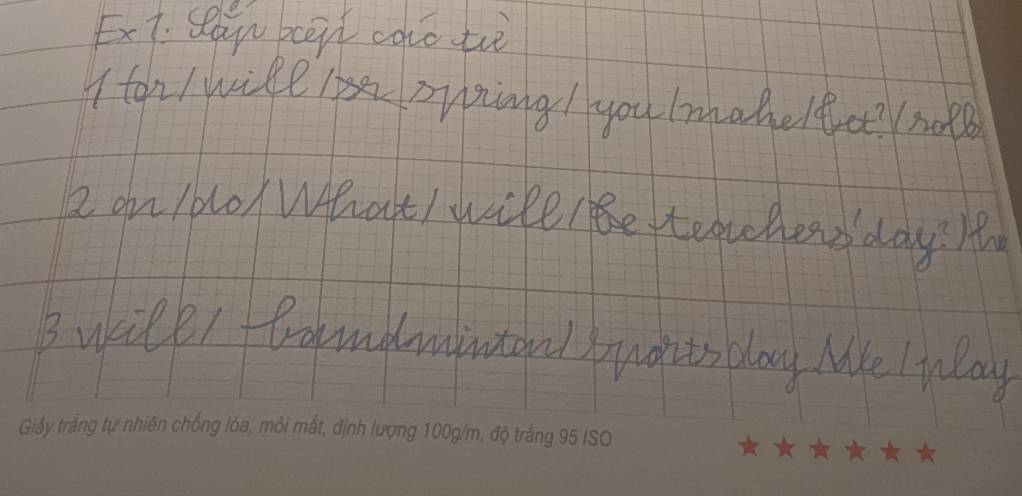 Ex 1: Sắp xếp các từ
1 for / will / spring / you / make / Tet? / rolls
2 on / do / What / will / he teachers' day? / he
3 will / bamdminton / sports day We / play
Giấy trắng tự nhiên chống lóa, mỏi mắt, định lượng 100g/m, độ trắng 95 ISO